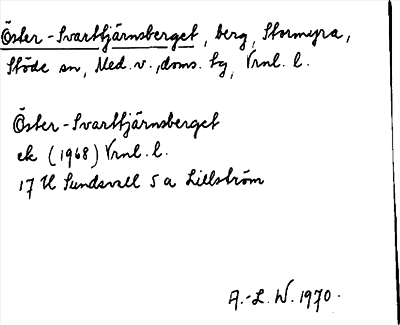 Öster-Svarttjärnsberget, berg, Stormyra,
Stöde sn, Med. v., doms. sg, Vrnl. l.
Öster-Svarttjärnsberget
ek (1968) Vrnl. l.
17 H Sundsvall 5 a Lillström
A.-L. W. 1970.